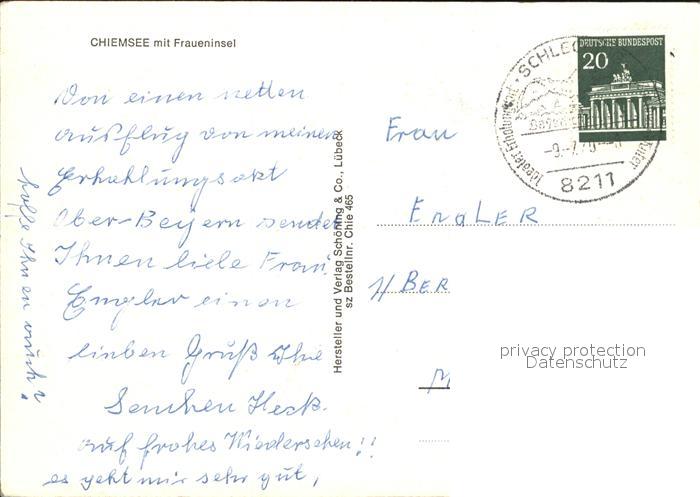 CHIEMSEE mit Fraueninsel
Von einen netten
ausflug von meinen
Erhahlungsokt
Ober-Beyern sendet
Ihnen liebe Frau
Engler einen
lieben Gruß Ihre
Heck.
auf frohes Wiedersehen!!
es geht mir sehr gut,
hoffe Ihnen auch!
Hersteller und Verlag Schöning & Co., Lübeck
sz Bestellnr. Chie 465
DEUTSCHE BUNDESPOST
20
SCHLEC
Idealer
-9.-7.70
8211
Frau
EngLER
BER
M
privacy protection
Datenschutz